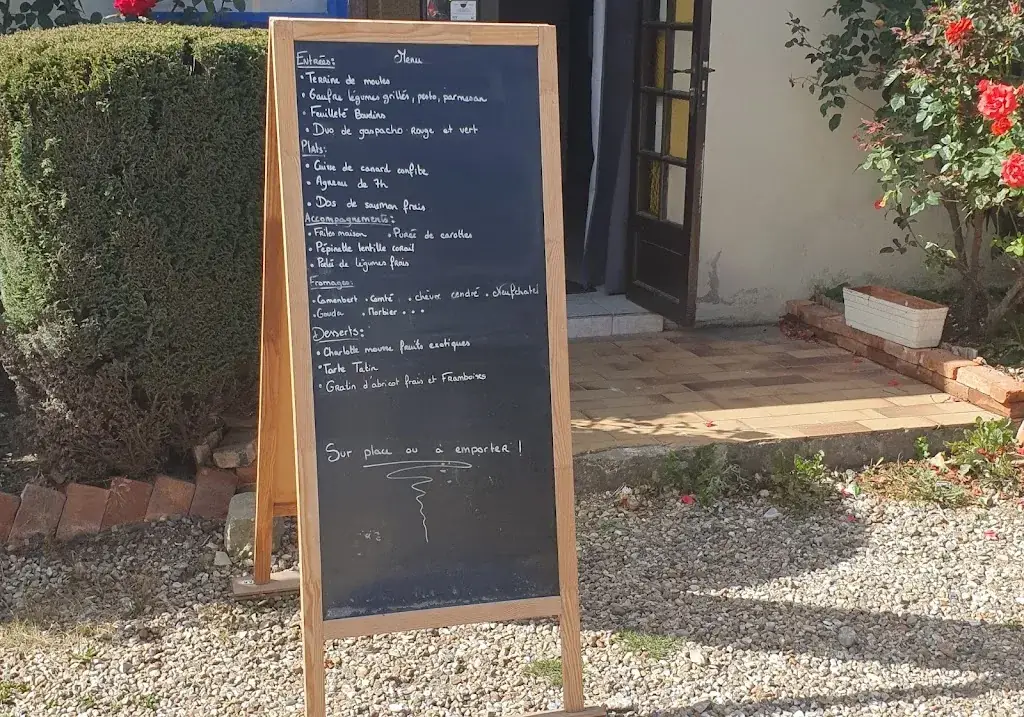 Menu
Entrées:
• Terrine de moules
• Gaufre légumes grillés, pesto, parmesan
• Feuilleté Boudins
• Duo de gaspacho rouge et vert
Plats:
• Cuisse de canard confite
• Agneau de 7h
• Dos de saumon frais
Accompagnements:
• Frites maison • Purée de carottes
• Pépinette lentille corail
• Poêlé de légumes frais
Fromages:
• Camenbert • Comté • chèvre cendré • Neufchatel
• Gouda • Morbier • • •
Desserts:
• Charlotte mousse fruits exotiques
• Tarte Tatin
• Gratin d'abricot frais et Framboises
Sur place ou à emporter !